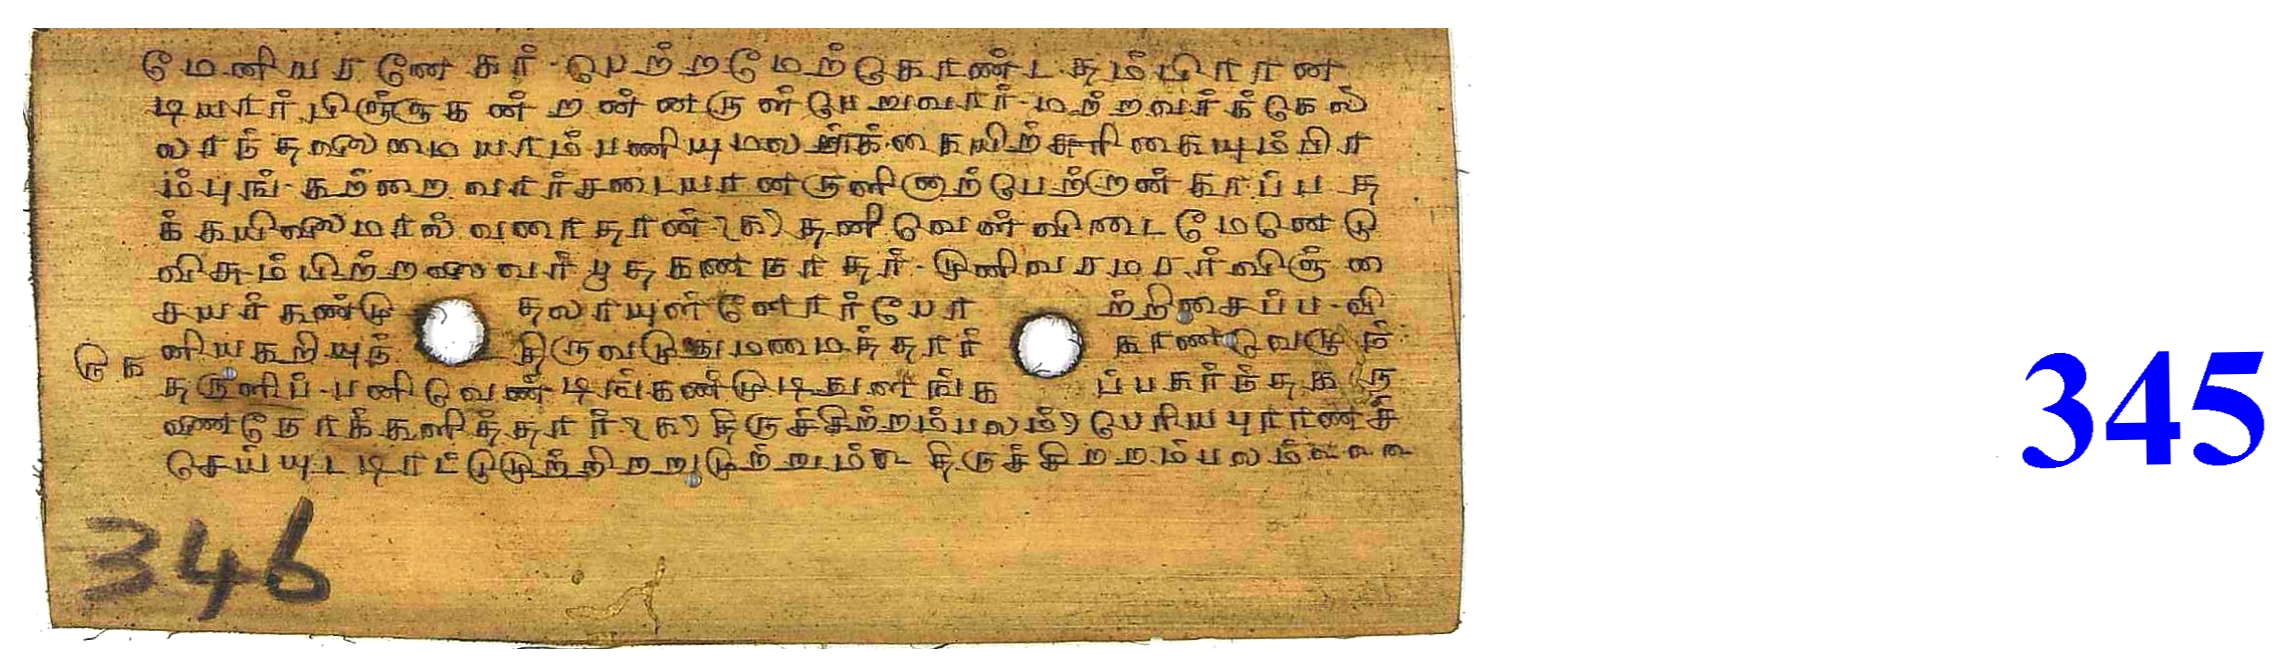 மேனியரனேகர்-பெற்றமேற்கொண்டதம்பிரான
டியார்பிஞ்ஞகன்றன்னருள்பெறுவார்-மற்றவர்க்கெல்
லாந்தலைமையாம்பணியுமலர்க்கையிற்சுரிகையும்பிர
ம்புங்-கற்றைவார்சடையானருளினாற்பெற்றான்காப்பத
க்கயிலைமால்வரைதான் (க) தனி வெள் விடைமேனெடு
விசும்பிற்றலைவர்பூதகணநாதர்-முனிவரமரர்விஞ்சை
சயர்கண்டு தலாயுள்ளோர்போ ற்றிசைப்ப-வி
னியகறியுந் திருவடு காண வெரும்
ருக
தருளிப்-பனிவெண்டிங்கண்முடிதுளங்க ப்பகர்ந்து
னோக்களித்தார் (க) திருச்சிற்றம்பலம்) பெரியபுராணச்
செய்யு முற்றிற்று முற்றும் திருச்சிற்றம்பலம்
346
345